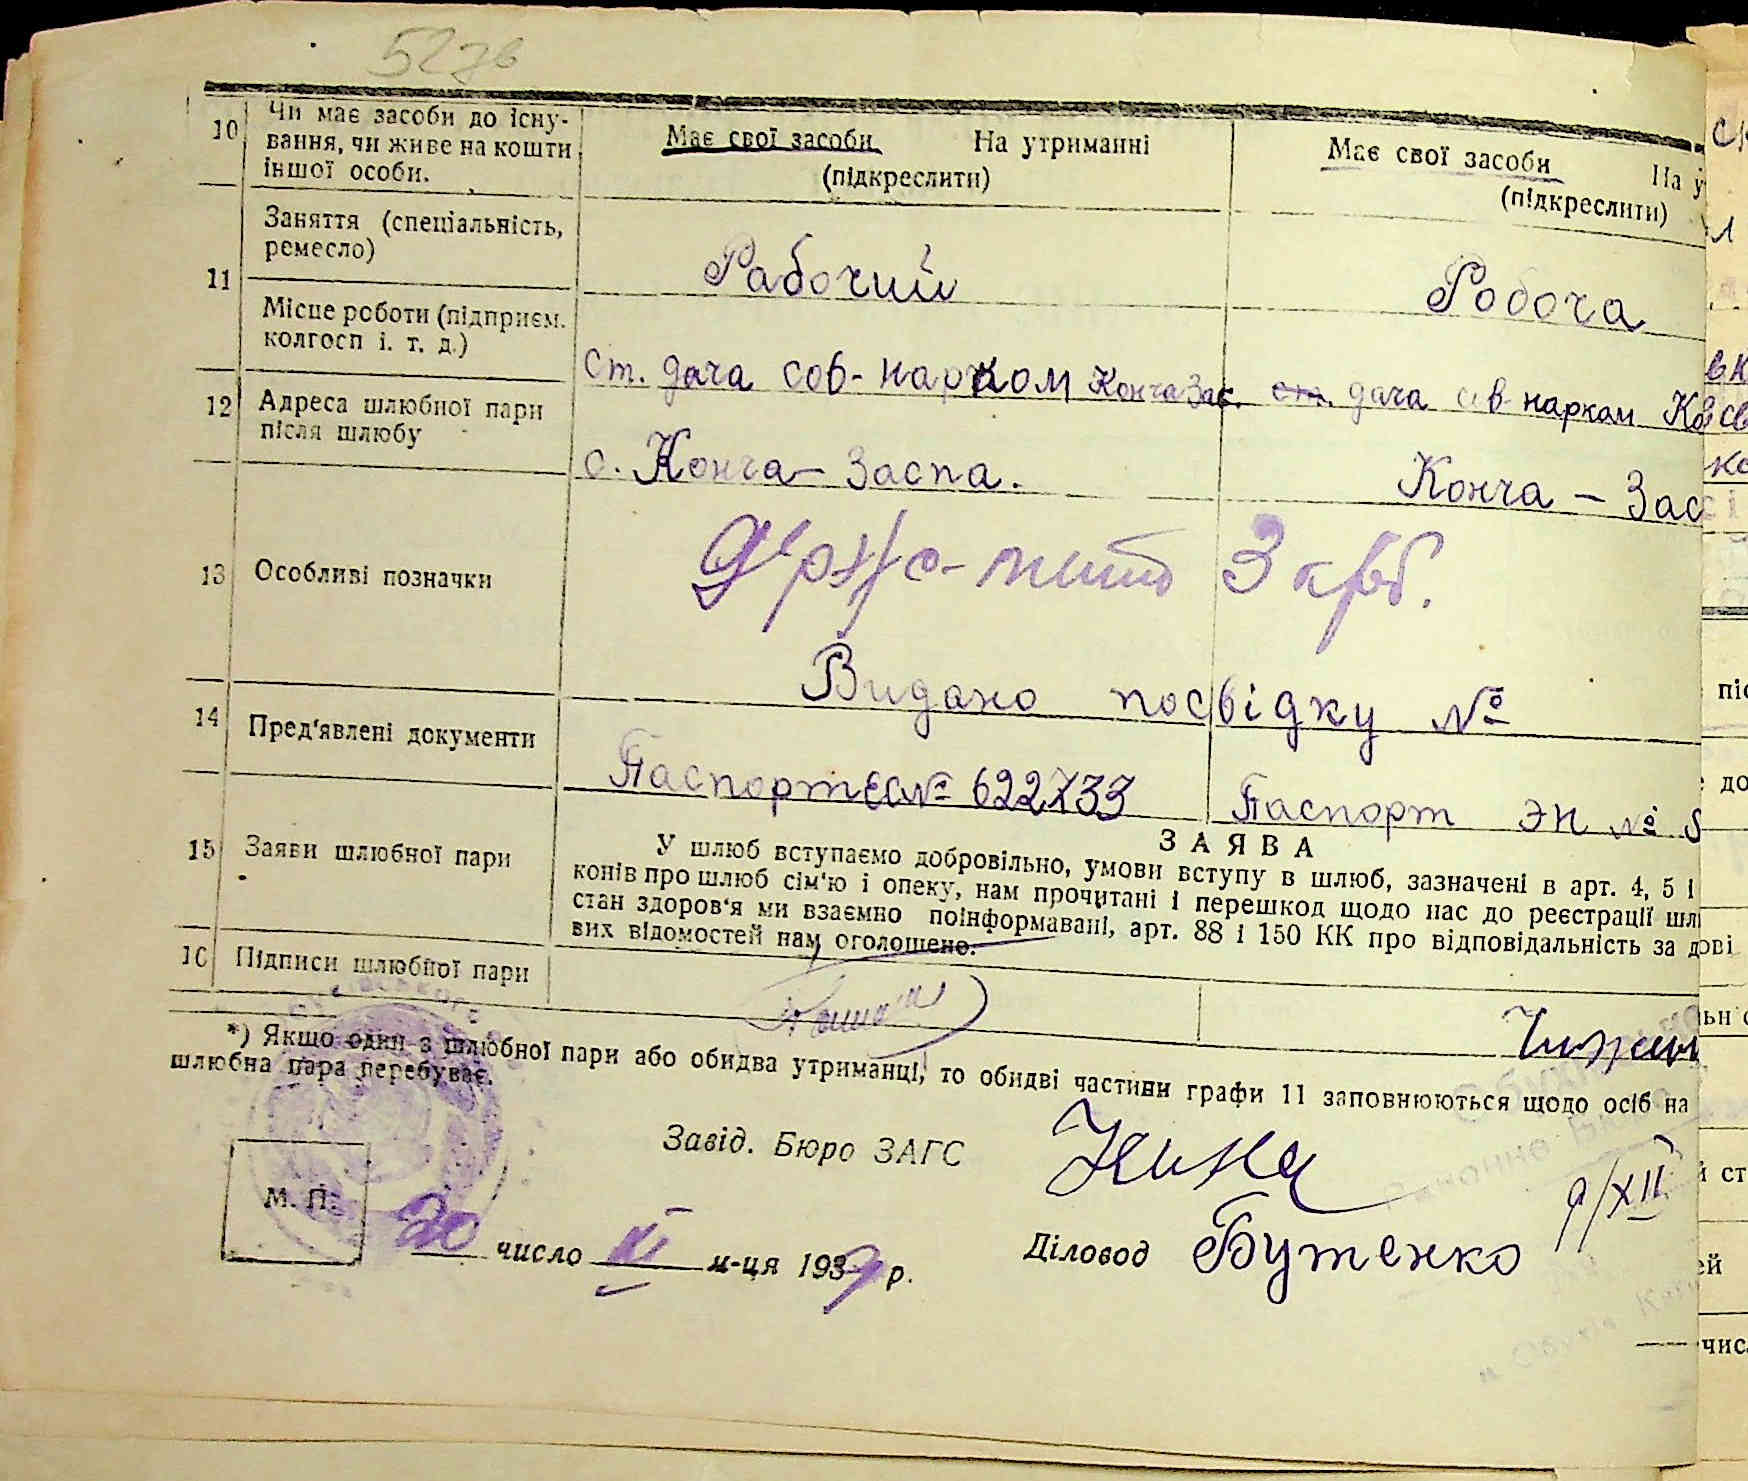 10 Чи має засоби до існу-
вання, чи живе на кошти
іншої особи.
Має свої засоби На утриманні
(підкреслити)
Має свої засоби На у
(підкреслити)
11 Заняття (спеціальність,
ремесло)
Рабочий
Робоча
Місце роботи (підприєм.
колгосп і. т. д.)
Ст. дача сов-нарком Конча Зас.
ст. дача сов наркам
12 Адреса шлюбної пари
після шлюбу
с. Конча-Заспа.
Конча - Зас
13 Особливі позначки
Держ-мито 3 крб.
Видано посвідку №
14 Пред'явлені документи
Паспорт ЄС № 622733
Паспорт ЭН №
15 Заяви шлюбної пари
ЗАЯВА
У шлюб вступаємо добровільно, умови вступу в шлюб, зазначені в арт. 4, 5 і
конів про шлюб сім'ю і опеку, нам прочитані і перешкод щодо нас до реєстрації шл
стан здоров'я ми взаємно поінформавані, арт. 88 і 150 КК про відповідальність за
вих відомостей нам оголошено.
16 Підписи шлюбної пари
*) Якщо один з шлюбної пари або обидва утриманці, то обидві частини графи 11 заповнюються щодо осіб на
шлюбна пара перебуває.
Завід. Бюро ЗАГС
М. П.
20 число XI м-ця 1937 р.
Діловод Бутенко
9/XII